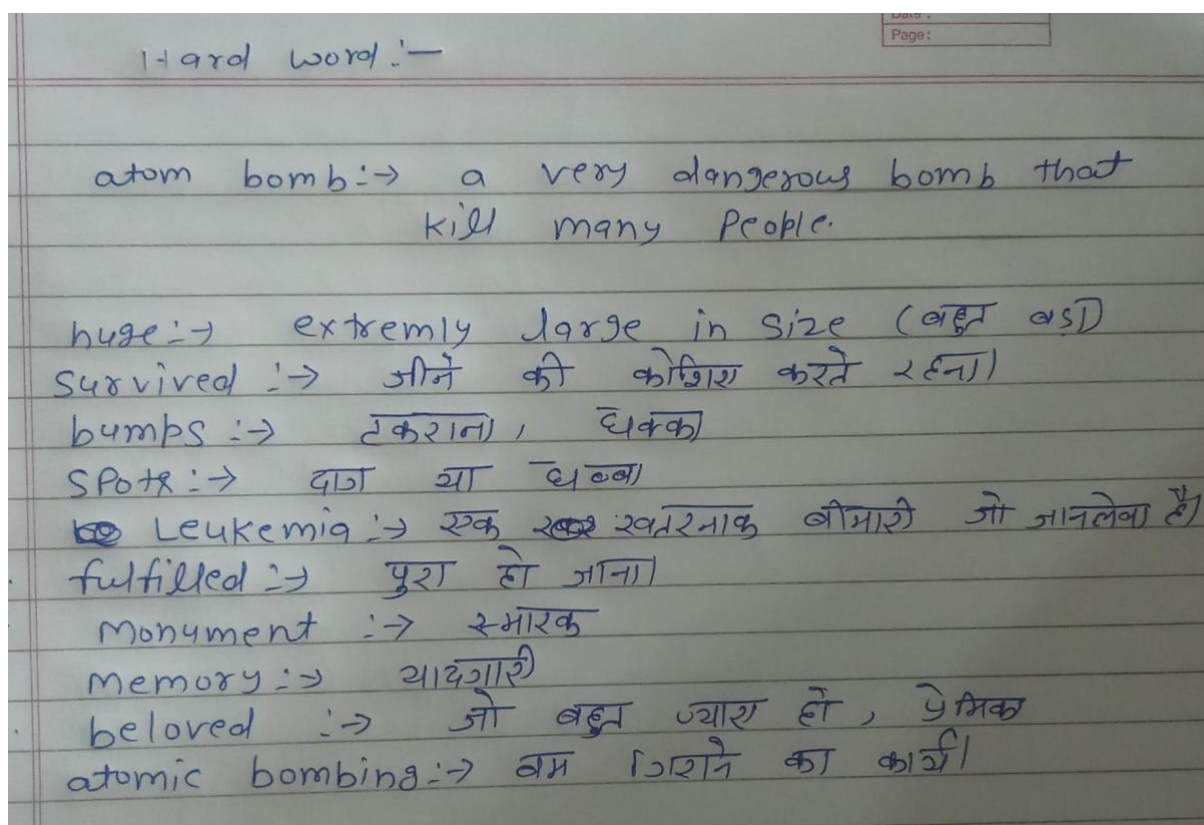 Date :
Page :
Hard word :-
atom bomb :→ a very dangerous bomb that
kill many people.
huge :→ extremly large in size (बहुत बडा)
survived :→ जीने की कोशिश करते रहना।
bumps :→ टकराना, धक्का
spots :→ दाग या धब्बा
Leukemia :→ एक खतरनाक बीमारी जो जानलेवा है।
fulfilled :→ पुरा हो जाना।
Monument :→ स्मारक
Memory :→ यादगारी
beloved :→ जो बहुत प्यारा हो, प्रेमिका
atomic bombing :→ बम गिराने का कार्य।